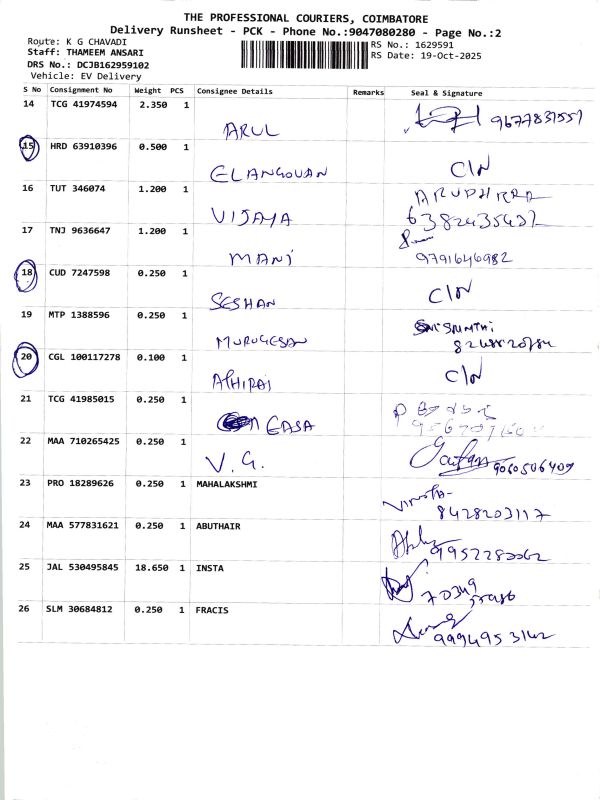 THE PROFESSIONAL COURIERS, COIMBATORE
Delivery Runsheet - PCK - Phone No.:9047080280 - Page No.:2
Route: K G CHAVADI
Staff: THAMEEM ANSARI
DRS No.: DCJB162959102
Vehicle: EV Delivery
RS No.: 1629591
RS Date: 19-Oct-2025
S No Consignment No Weight PCS Consignee Details Remarks Seal & Signature
14 TCG 41974594 2.350 1
ARUL 9677831557
15 HRD 63910396 0.500 1
ELANGOVAN C/N
16 TUT 346074 1.200 1
VIJAYA ARUDHRRA
6382435437
17 TNJ 9636647 1.200 1
MANI 9791646982
18 CUD 7247598 0.250 1
SESHAN C/N
19 MTP 1388596 0.250 1
MURUGESAN
20 CGL 100117278 0.100 1
ATHIRAI C/N
21 TCG 41985015 0.250 1
EASA
22 MAA 710265425 0.250 1
V. G. 9060506409
23 PRO 18289626 0.250 1 MAHALAKSHMI
8428203117
24 MAA 577831621 0.250 1 ABUTHAIR
25 JAL 530495845 18.650 1 INSTA
26 SLM 30684812 0.250 1 FRACIS
9994953142